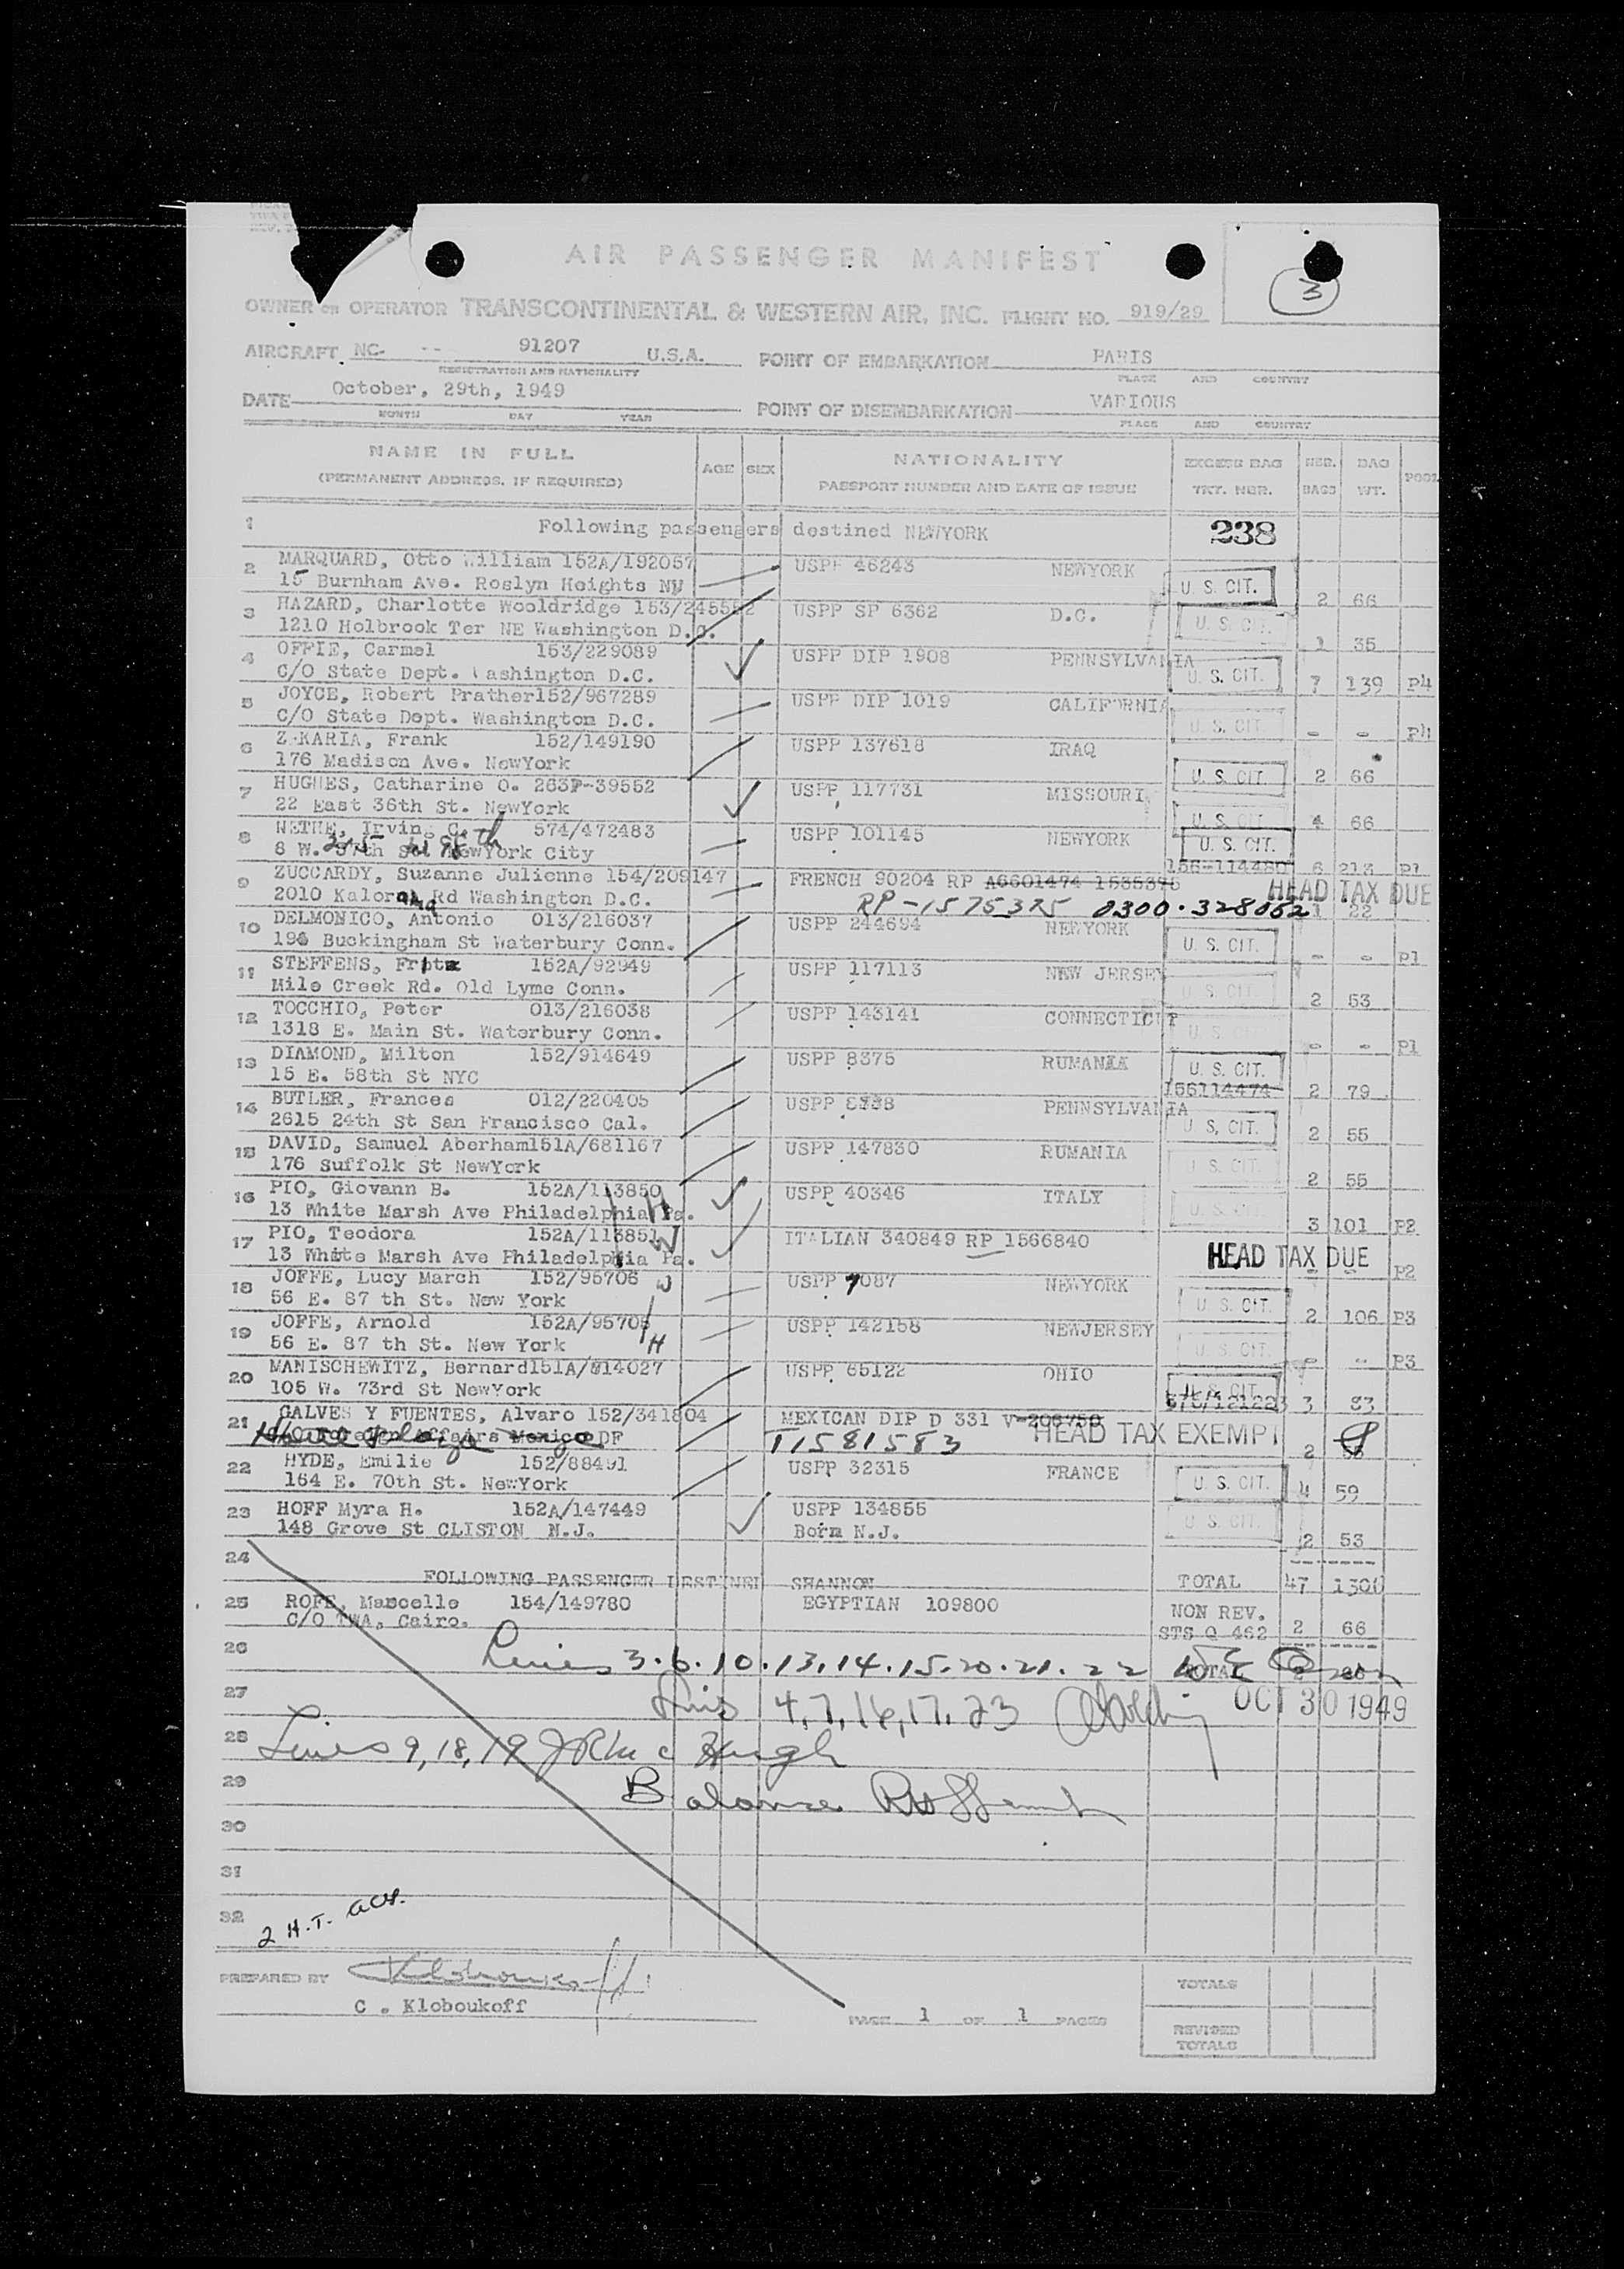 AIR PASSENGER MANIFEST
3
OWNER OR OPERATOR TRANSCONTINENTAL & WESTERN AIR, INC. FLIGHT NO. 919/29
AIRCRAFT NC- -- 91207 U.S.A. POINT OF EMBARKATION PARIS
REGISTRATION AND NATIONALITY PLACE AND COUNTRY
DATE October, 29th, 1949 POINT OF DISEMBARKATION VARIOUS
MONTH DAY YEAR PLACE AND COUNTRY
NAME IN FULL AGE SEX NATIONALITY EXCESS BAG NBR. BAG POOL
(PERMANENT ADDRESS, IF REQUIRED) PASSPORT NUMBER AND DATE OF ISSUE TKT. NBR. BAGS WT.
1 Following passengers destined NEWYORK 238
2 MARQUARD, Otto William 152A/192057 USPP 46243 NEWYORK U. S. CIT. 2 66
15 Burnham Ave. Roslyn Heights NY
3 HAZARD, Charlotte Wooldridge 153/245552 USPP SP 6362 D.C. U. S. CIT. 1 35
1210 Holbrook Ter NE Washington D.C.
4 OFFIE, Carmel 153/229089 USPP DIP 1908 PENNSYLVANIA U. S. CIT. 7 139 P4
C/O State Dept. Washington D.C.
5 JOYCE, Robert Prather152/967289 USPP DIP 1019 CALIFORNIA U. S. CIT. - - P4
C/O State Dept. Washington D.C.
6 ZAKARIA, Frank 152/149190 USPP 137618 IRAQ U. S. CIT 2 66
176 Madison Ave. NewYork
7 HUGHES, Catharine O. 263P-39552 USPP 117731 MISSOURI U. S. CIT 4 66
22 East 36th St. NewYork
8 NETHE, Irving C. 574/472483 USPP 101145 NEWYORK U. S. CIT.
8 W. 57th St NewYork City 156-114480 6 213 P1
9 ZUCCARDY, Suzanne Julienne 154/209147 FRENCH 90204 RP A6601474 1535375 HEAD TAX DUE
2010 Kalorama Rd Washington D.C. RP-1575375 0300.328052 1 22
10 DELMONICO, Antonio 013/216037 USPP 244694 NEWYORK U. S. CIT. - - P1
196 Buckingham St Waterbury Conn.
11 STEFFENS, Fritz 152A/92949 USPP 117113 NEW JERSEY U. S. CIT. 2 53
Mile Creek Rd. Old Lyme Conn.
12 TOCCHIO, Peter 013/216038 USPP 143141 CONNECTICUT U. S. - - P1
1318 E. Main St. Waterbury Conn.
13 DIAMOND, Milton 152/914649 USPP 8375 RUMANIA U. S. CIT.
15 E. 58th St NYC 156114474 2 79
14 BUTLER, Frances 012/220405 USPP PENNSYLVANIA U. S. CIT. 2 55
2615 24th St San Francisco Cal.
15 DAVID, Samuel Aberham151A/681167 USPP 147830 RUMANIA U. S. CIT. 2 55
176 Suffolk St NewYork
16 PIO, Giovann B. 152A/113850 H USPP 40346 ITALY U. S. CIT. 3 101 P2
13 White Marsh Ave Philadelphia Pa.
17 PIO, Teodora 152A/113851 W ITALIAN 340849 RP 1566840 HEAD TAX DUE P2
13 White Marsh Ave Philadelphia Pa.
18 JOFFE, Lucy March 152/95706 W USPP 7087 NEWYORK U. S. CIT. 2 106 P3
56 E. 87 th St. New York
19 JOFFE, Arnold 152A/95705 H USPP 142158 NEWJERSEY U. S. CIT. - - P3
56 E. 87 th St. New York
20 MANISCHEWITZ, Bernard151A/914027 USPP 65122 OHIO U. S. CIT.
105 W. 73rd St NewYork 576/121223 3 83
21 GALVES Y FUENTES, Alvaro 152/341804 MEXICAN DIP D 331 V-206750 HEAD TAX EXEMPT
Foreign Affairs Mexico DF T1581583 2
22 HYDE, Emilie 152/88491 USPP 32315 FRANCE U. S. CIT. 4 59
164 E. 70th St. NewYork
23 HOFF Myra H. 152A/147449 USPP 134855 U. S. CIT. 2 53
148 Grove St CLISTON N.J. Born N.J.
24 FOLLOWING PASSENGER DESTINED SHANNON TOTAL 47 1300
25 ROFE, Marcelle 154/149780 EGYPTIAN 109800 NON REV.
C/O TWA, Cairo. STS Q 462 2 66
26 Lines 3.6.10.13.14.15.20.21.22 TOTAL 2
27 Lines 4,7,16,17,23 OCT 30 1949
28 Lines 9,18,19
29 Balance
30
31
32 2 H.T. acct.
PREPARED BY
C . Kloboukoff PAGE 1 OF 1 PAGES
TOTALS
REVISED
TOTALS